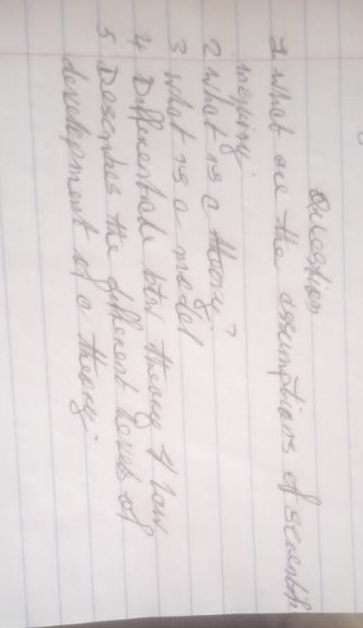 Question
1 What are the assumptions of scientific
inquiry
2 What is a theory?
3 What is a model
4 Differentiate btw theory & law
5 Describe the different levels of
development of a theory.